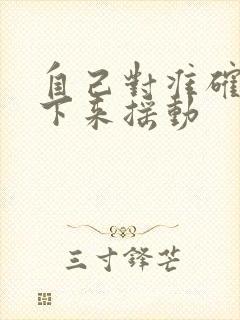 自己對准確
下來搖動
三寸鋒芒